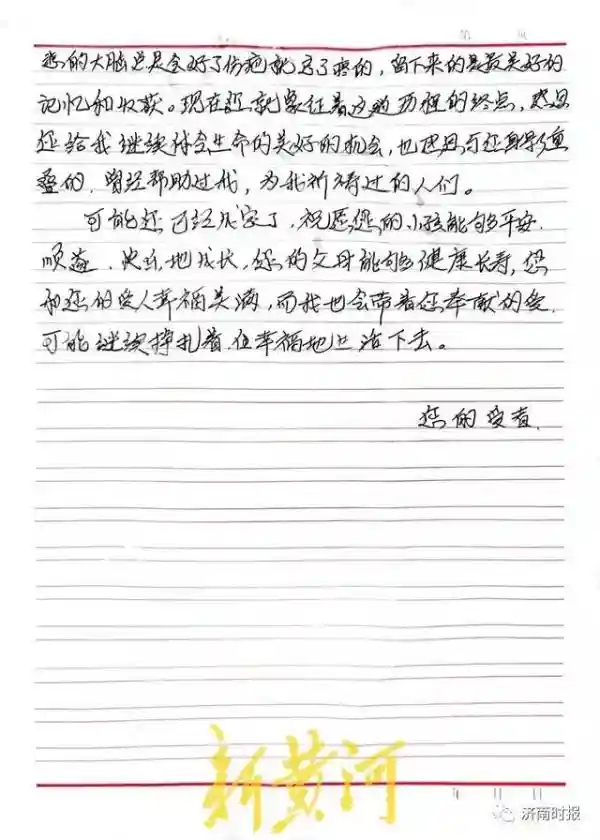 您的大脑总是会好了伤疤就忘了疼的，留下来的是最美好的
记忆和收获。现在您就象征着这趟历程的终点，感恩
您给我继续体会生命的美好的机会，也感恩与您身影重
叠的、曾经帮助过我，为我祈祷过的人们。
可能您已经成家了，祝愿您的小孩能够平安、
顺遂、快乐地成长，您的父母能够健康长寿，您
和您的爱人幸福美满，而我也会带着您奉献的爱，
可能继续挣扎着但幸福地生活下去。
您的受者.
新黄河
济南时报